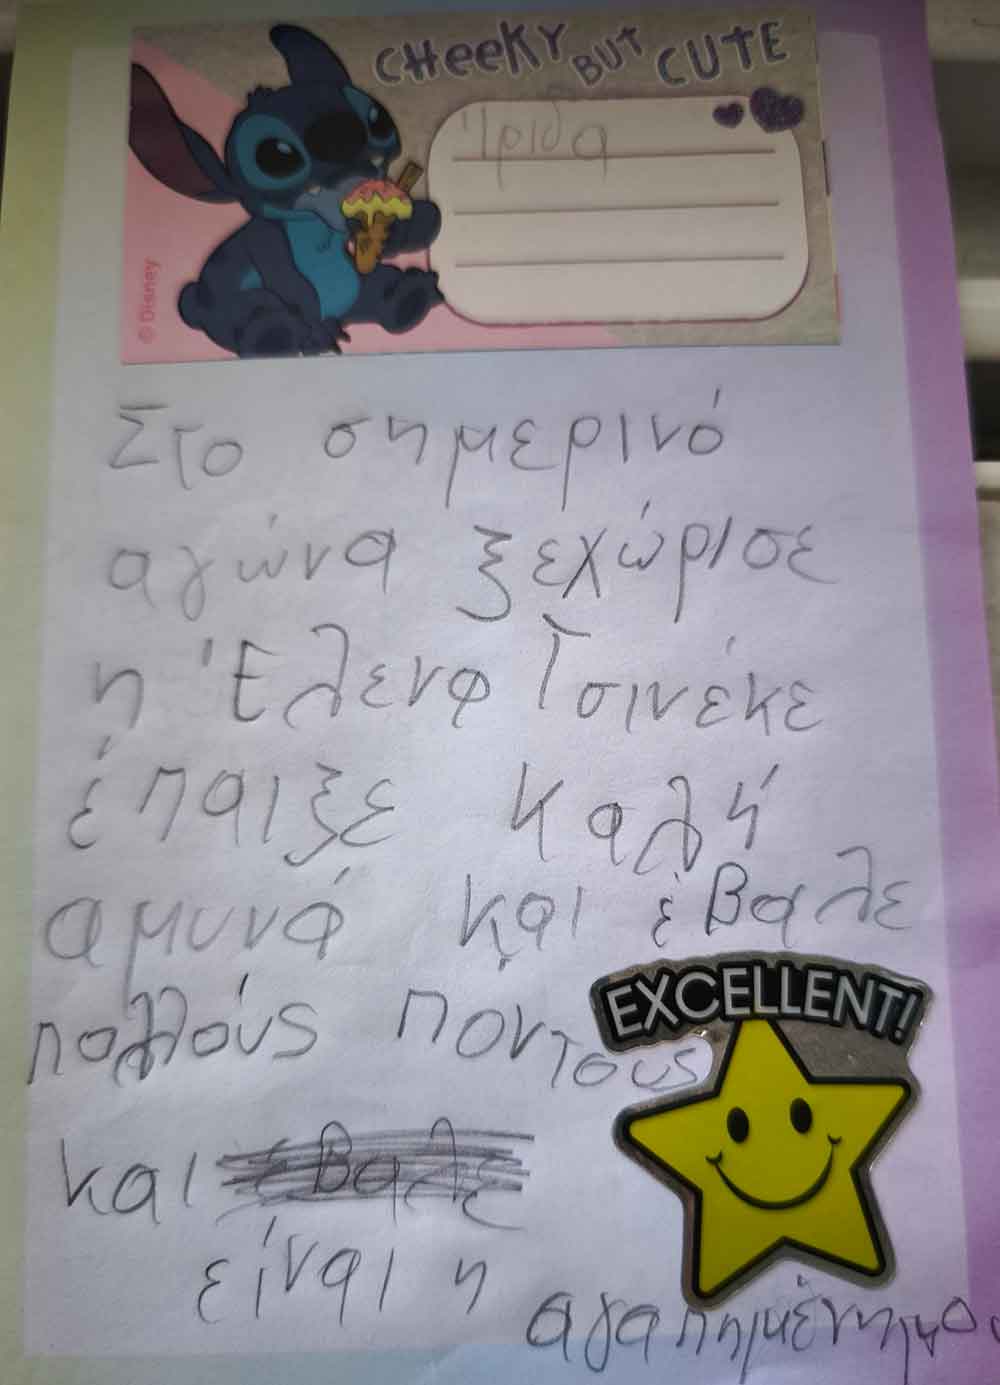 CHEEKY BUT CUTE
Ίριδα
© Disney
Στο σημερινό
αγώνα ξεχώρισε
η Έλενα Τσινέκε
έπαιξε καλή
αμυνά και έβαλε
πολλούς ποντους
EXCELLENT!
και βαλε
είναι η
αγαπημένημου